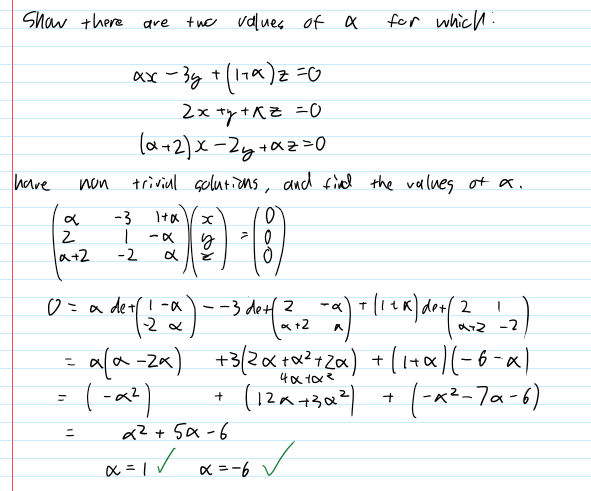 Show there are two values of α for which:
αx - 3y + (1+α)z = 0
2x + y + αz = 0
(α+2)x - 2y + αz = 0
have non trivial solutions, and find the values of α.
(α -3 1+α) (x) (0)
(2 1 -α) (y) = (0)
(α+2 -2 α) (z) (0)
0 = α det(1 -α; -2 α) - -3 det(2 -α; α+2 α) + (1+α) det(2 1; α+2 -2)
= α(α - 2α) + 3(2α + α² + 2α) + (1+α)(-6-α)
4α+α²
= (-α²) + (12α + 3α²) + (-α² - 7α - 6)
= α² + 5α - 6
α = 1 ✓ α = -6 ✓